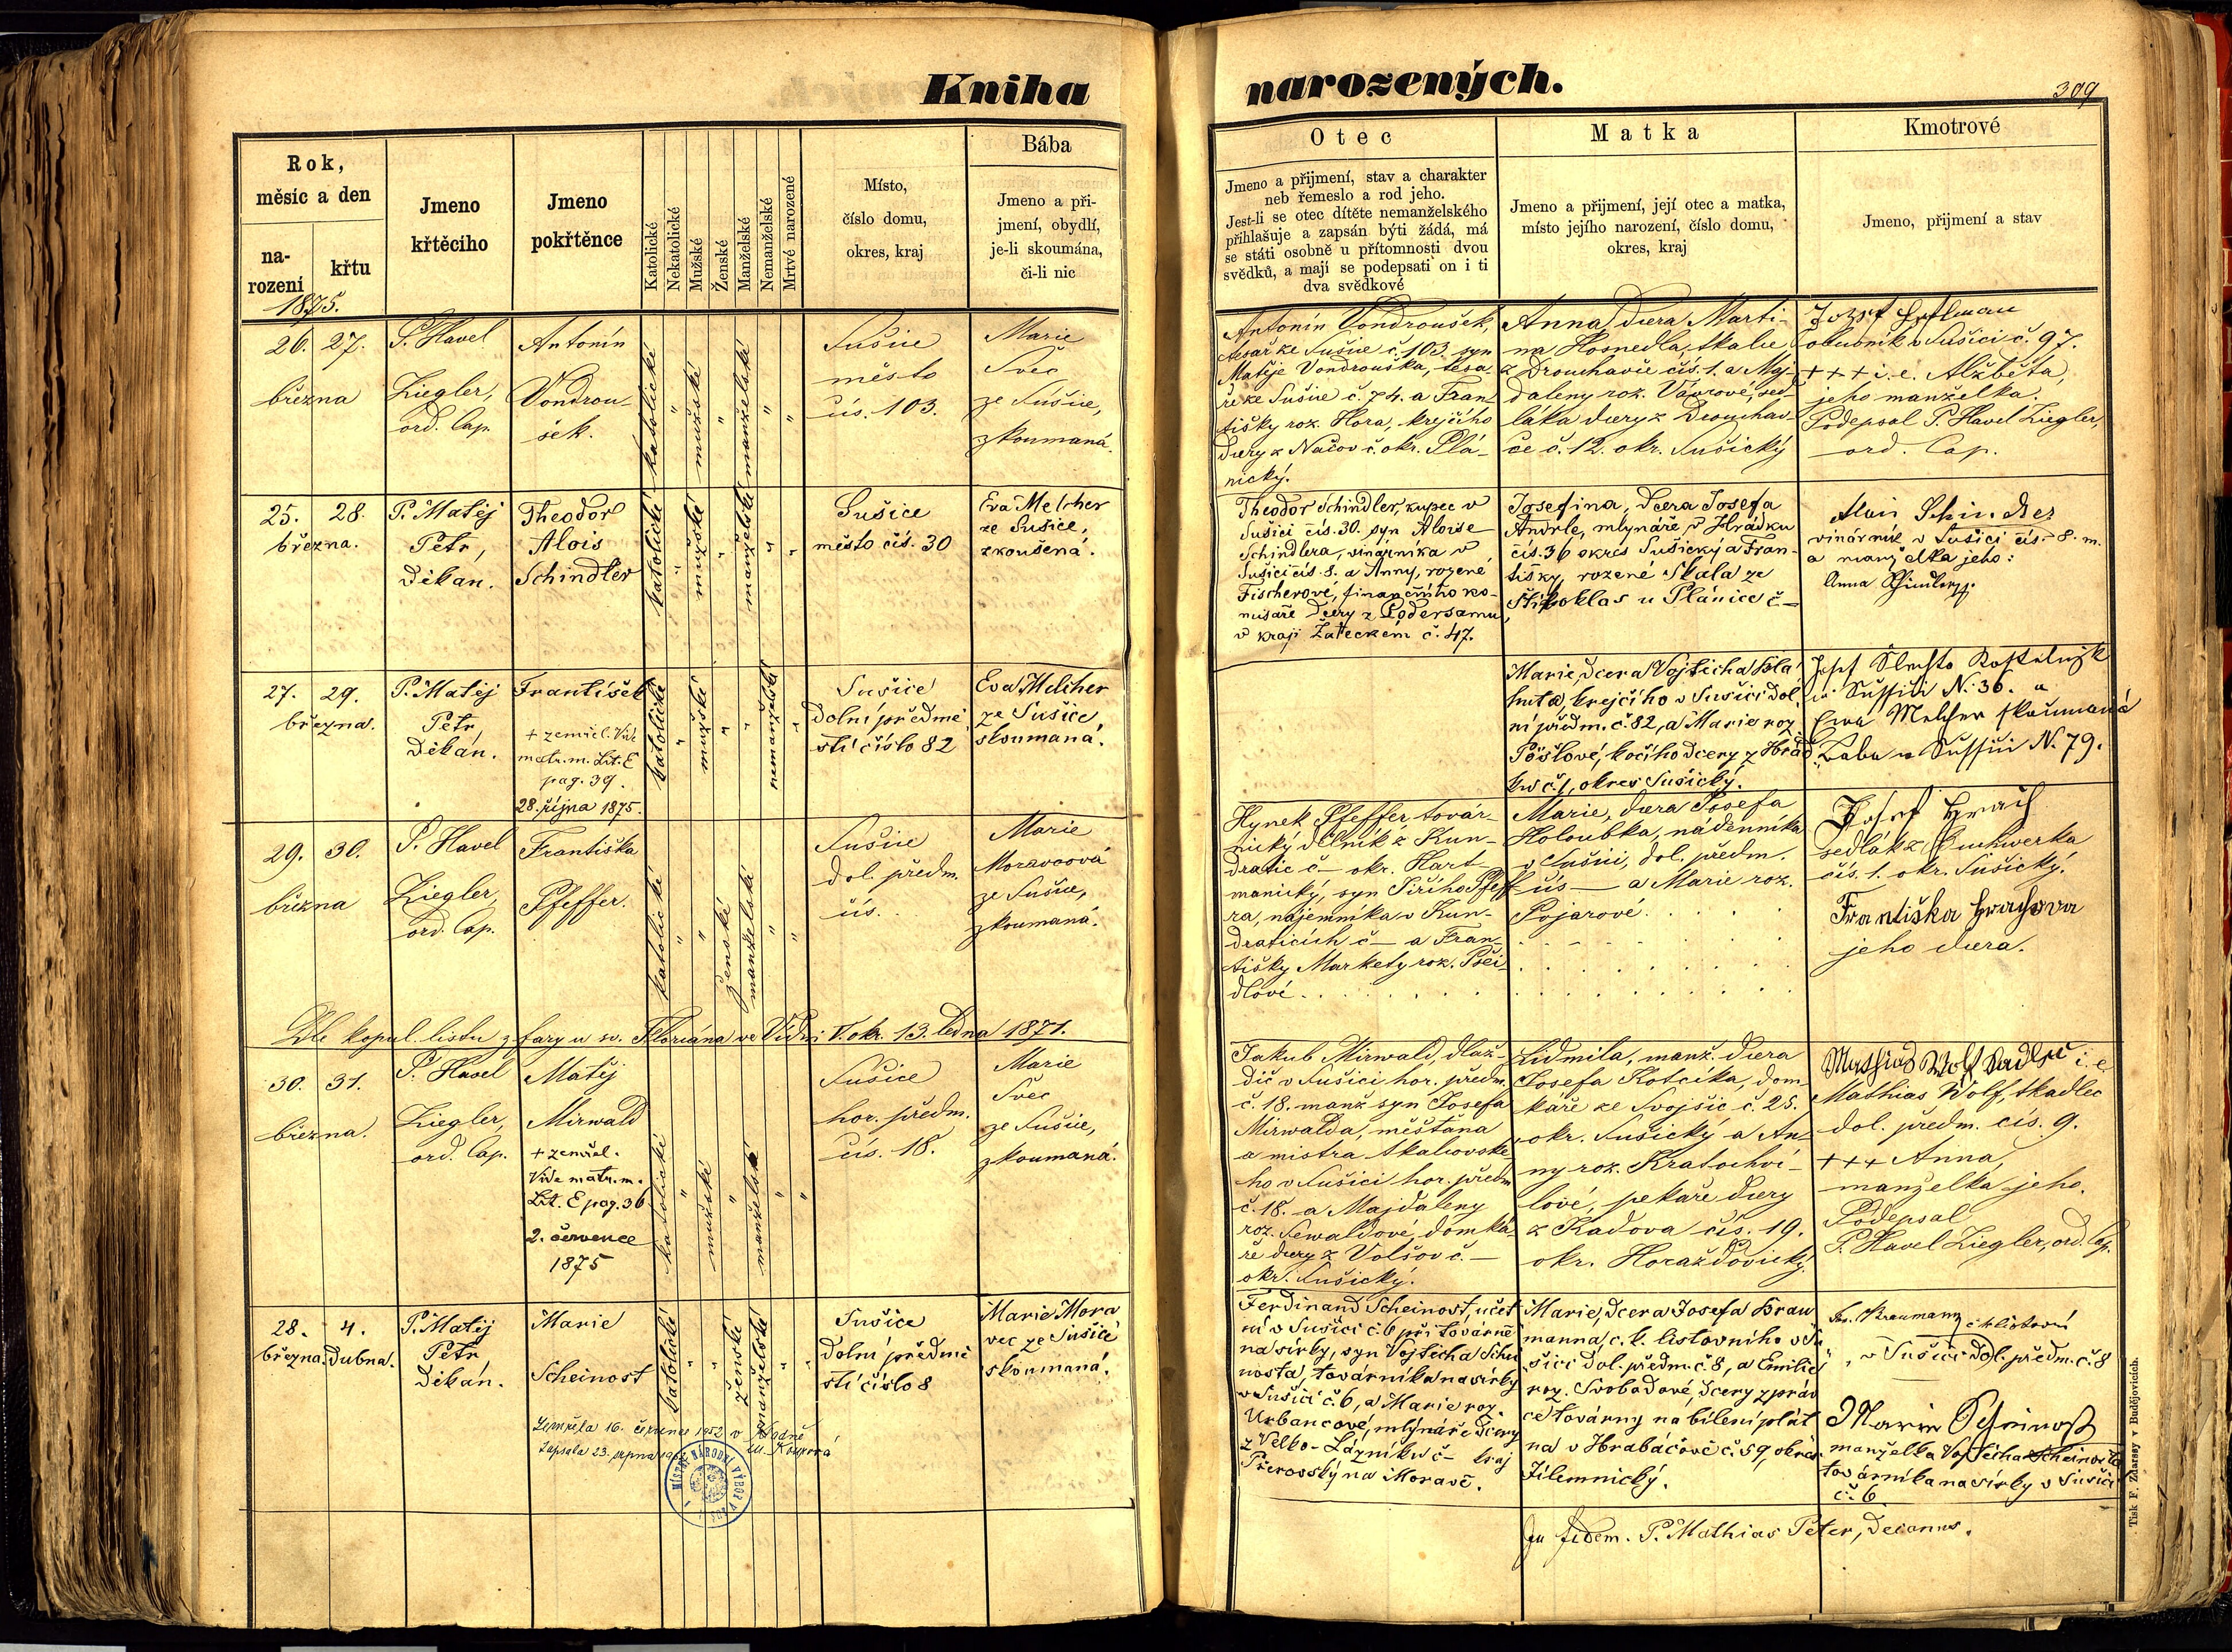 Kniha
narozených.
309
Rok,
měsíc a den
na-
rození
křtu
Jmeno
křtěcího
Jmeno
pokřtěnce
Katolické
Nekatolické
Mužské
Ženské
Manželské
Nemanželské
Mrtvé narozené
Místo,
číslo domu,
okres, kraj
Bába
Jmeno a při-
jmení, obydlí,
je-li skoumána,
či-li nic
Otec
Jmeno a přijmení, stav a charakter
neb řemeslo a rod jeho.
Jest-li se otec dítěte nemanželského
přihlašuje a zapsán býti žádá, má
se státi osobně u přítomnosti dvou
svědků, a mají se podepsati on i ti
dva svědkové
Matka
Jmeno a přijmení, její otec a matka,
místo jejího narození, číslo domu,
okres, kraj
Kmotrové
Jmeno, přijmení a stav
1875.
26. 27.
března
P. Havel
Ziegler,
ord. Cap.
Antonín
Vondrou-
šek.
katolické
"
mužské
"
manželské
"
"
Sušice
město
čís. 103.
Marie
Švec
ze Sušice,
zkoumaná.
Antonín Vondroušek,
tesař ze Sušice č. 103. syn
Matěje Vondrouška, tesa-
ře ze Sušice č. 74. a Fran-
tišky roz. Hora, krejčího
dcery z Načov č. okr. Plá-
nický.
Anna, dcera Marti-
na Hosnedla, tkalce
z Drouhavče čís. 1. a Maj-
daleny roz. Vávrové, sed-
láka dcery z Drouhav-
če č. 12. okr. Sušický
Josef
obuvník v Sušici č. 97.
+++ i. e. Alžběta,
jeho manželka.
Podepsal P. Havel Ziegler,
ord. Cap.
25. 28.
března.
P. Matěj
Petr,
Děkan.
Theodor
Alois
Schindler
katolické
"
mužské
"
manželské
"
"
Sušice
město čís. 30
Eva Melcher
ze Sušice,
zkoušená.
Theodor Schindler, kupec v
Sušici čís. 30. syn Aloise
Schindlera, vinárníka v
Sušici čís. 8. a Anny, rozené
Fischerové, finančního ko-
misaře dcery z Podersamu,
v kraji Žateckém č. 47.
Josefina, dcera Josefa
Andrle, mlynáře v Hrádku
čís. 36 okres Sušický a Fran-
tišky, rozené Skala ze
Štipoklas u Plánice č—
Alois Schindler
vinárník v Sušici čís. 8. m.
a manželka jeho:
Anna
27. 29.
března.
P. Matěj
Petr,
Děkan.
František
+ zemřel. Vide
matr. m. Lit. E
pag. 39.
28. října 1875.
katolické
"
mužské
"
"
nemanželské
"
Sušice
Dolní předmě-
stí číslo 82
Eva Melcher
ze Sušice,
skoumaná.
Marie, dcera Vojtěcha
krejčího v Sušici Dol-
ní předm. č. 82, a Marie roz.
Pöslové, kočího dcery z Hrád-
ku č. 1, okres Sušický.
Josef
N. 36.
Ewa Melcher
Baba N. 79.
29. 30.
března
P. Havel
Ziegler,
ord. Cap.
Františka
Pfeffer.
katolické
"
"
ženské
manželské
"
"
Sušice
dol. předm.
čís.
Marie
Moravcová
ze Sušice,
zkoumaná.
Hynek Pfeffer továr-
nický dělník z Kun-
dratic č— okr. Hart-
manický, syn Jiřího Pfeffe-
ra, nájemníka v Kun-
draticích č— a Fran-
tišky Markety roz. Psei-
dlové.
Marie, dcera Josefa
Holoubka, nádenníka
v Sušici, dol. předm.
čís — a Marie roz.
Pojarové.
Josef
sedlák z
čís. 1. okr. Sušický.
Františka
jeho dcera.
Dle kopul. listu z fary u sv. Floriána ve Vídni V. okr. 13. ledna 1871.
30. 31.
března.
P. Havel
Ziegler,
ord. Cap.
Matěj
Mirwald
+ zemřel.
Vide matr. m.
Lit. E pag. 36
2. července
1875
katolické
"
mužské
"
manželské
"
"
Sušice
hor. předm.
čís. 18.
Marie
Švec
ze Sušice,
zkoumaná.
Jakub Mirwald, dlaž-
dič v Sušici hor. předm.
č. 18. manž. syn Josefa
Mirwalda, měšťana
a mistra tkalcovské-
ho v Sušici hor. předm.
č. 18. a Majdaleny
roz. Sewaldové, domká-
ře dcery z Volšov č.—
okr. Sušický.
Lidmila, manž. dcera
Josefa Kotčíka, dom-
káře ze Svojšic č. 25.
okr. Sušický a An-
ny roz. Kratochví-
lové, pekaře dcery
z Kadova čís. 19.
okr. Horažďovický.
Mathias Wolf tkadlec i. e.
Mathias Wolf, tkadlec
dol. předm. čís. 9.
+++ Anna,
manželka jeho.
Podepsal
P. Havel Ziegler, ord. Cap.
28. 4.
března. Dubna.
P. Matěj
Petr
Děkan.
Marie
Scheinost
Zemřela 16. července 1952 v
Zapsala 23. srpna
katolické
"
"
ženské
manželské
"
"
MÍSTNÍ NÁRODNÍ VÝBOR
Sušice
Dolní předmě-
stí číslo 8
Marie Mora-
vec ze Sušice
skoumaná.
Ferdinand Scheinost, účet-
ní v Sušici č. 6 při továrně
na sirky, syn Vojtěcha Schei-
nosta, továrníka na sirky
v Sušici č. 6, a Marie roz.
Urbancové, mlynáře dcery
z Velko-Lázníků č— kraj
Přerovský na Moravě.
Marie, dcera Josefa Krau-
manna, c. k. listovního v Su-
šici dol. předm. č. 8, a Emilie
roz. Svobodové, dcery zpráv-
ce továrny na bílení plát-
na v Hrabáčově č. 59, okres
Jilemnický.
Jos. Kraumann c k listovní
v Sušici Dol. předm. č. 8
Marie Scheinost
manželka Vojtěcha Scheinosta
továrníka na sirky v Sušici
č. 6.
In fidem. P. Mathias Peter, Decanus.
Tisk F. Zdarssy v Budějovicích.